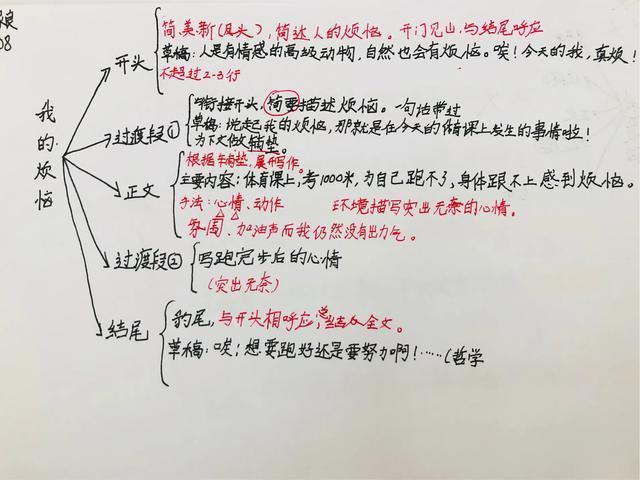 08
我的烦恼
开头
简、美、新(凤头),简述人的烦恼。开门见山,与结尾呼应
草稿:人是有情感的高级动物,自然也会有烦恼。唉!今天的我,真烦!
不超过2-3行
过渡段①
衔接开头,简要描述烦恼。一句话带过
草稿:说起我的烦恼,那就是在今天的体育课上发生的事情啦!
为下文做铺垫。
正文
根据铺垫,展开写作。
主要内容:体育课上,考1000米,为自己跑不了,身体跟不上感到烦恼。
手法:心情、动作 环境描写突出无奈的心情。
氛围、加油声而我仍然没有出力气。
过渡段②
写跑完步后的心情
(突出无奈)
结尾
豹尾,与开头相呼应,总结全文。
草稿:唉;想要跑好还是要努力啊!……(哲学